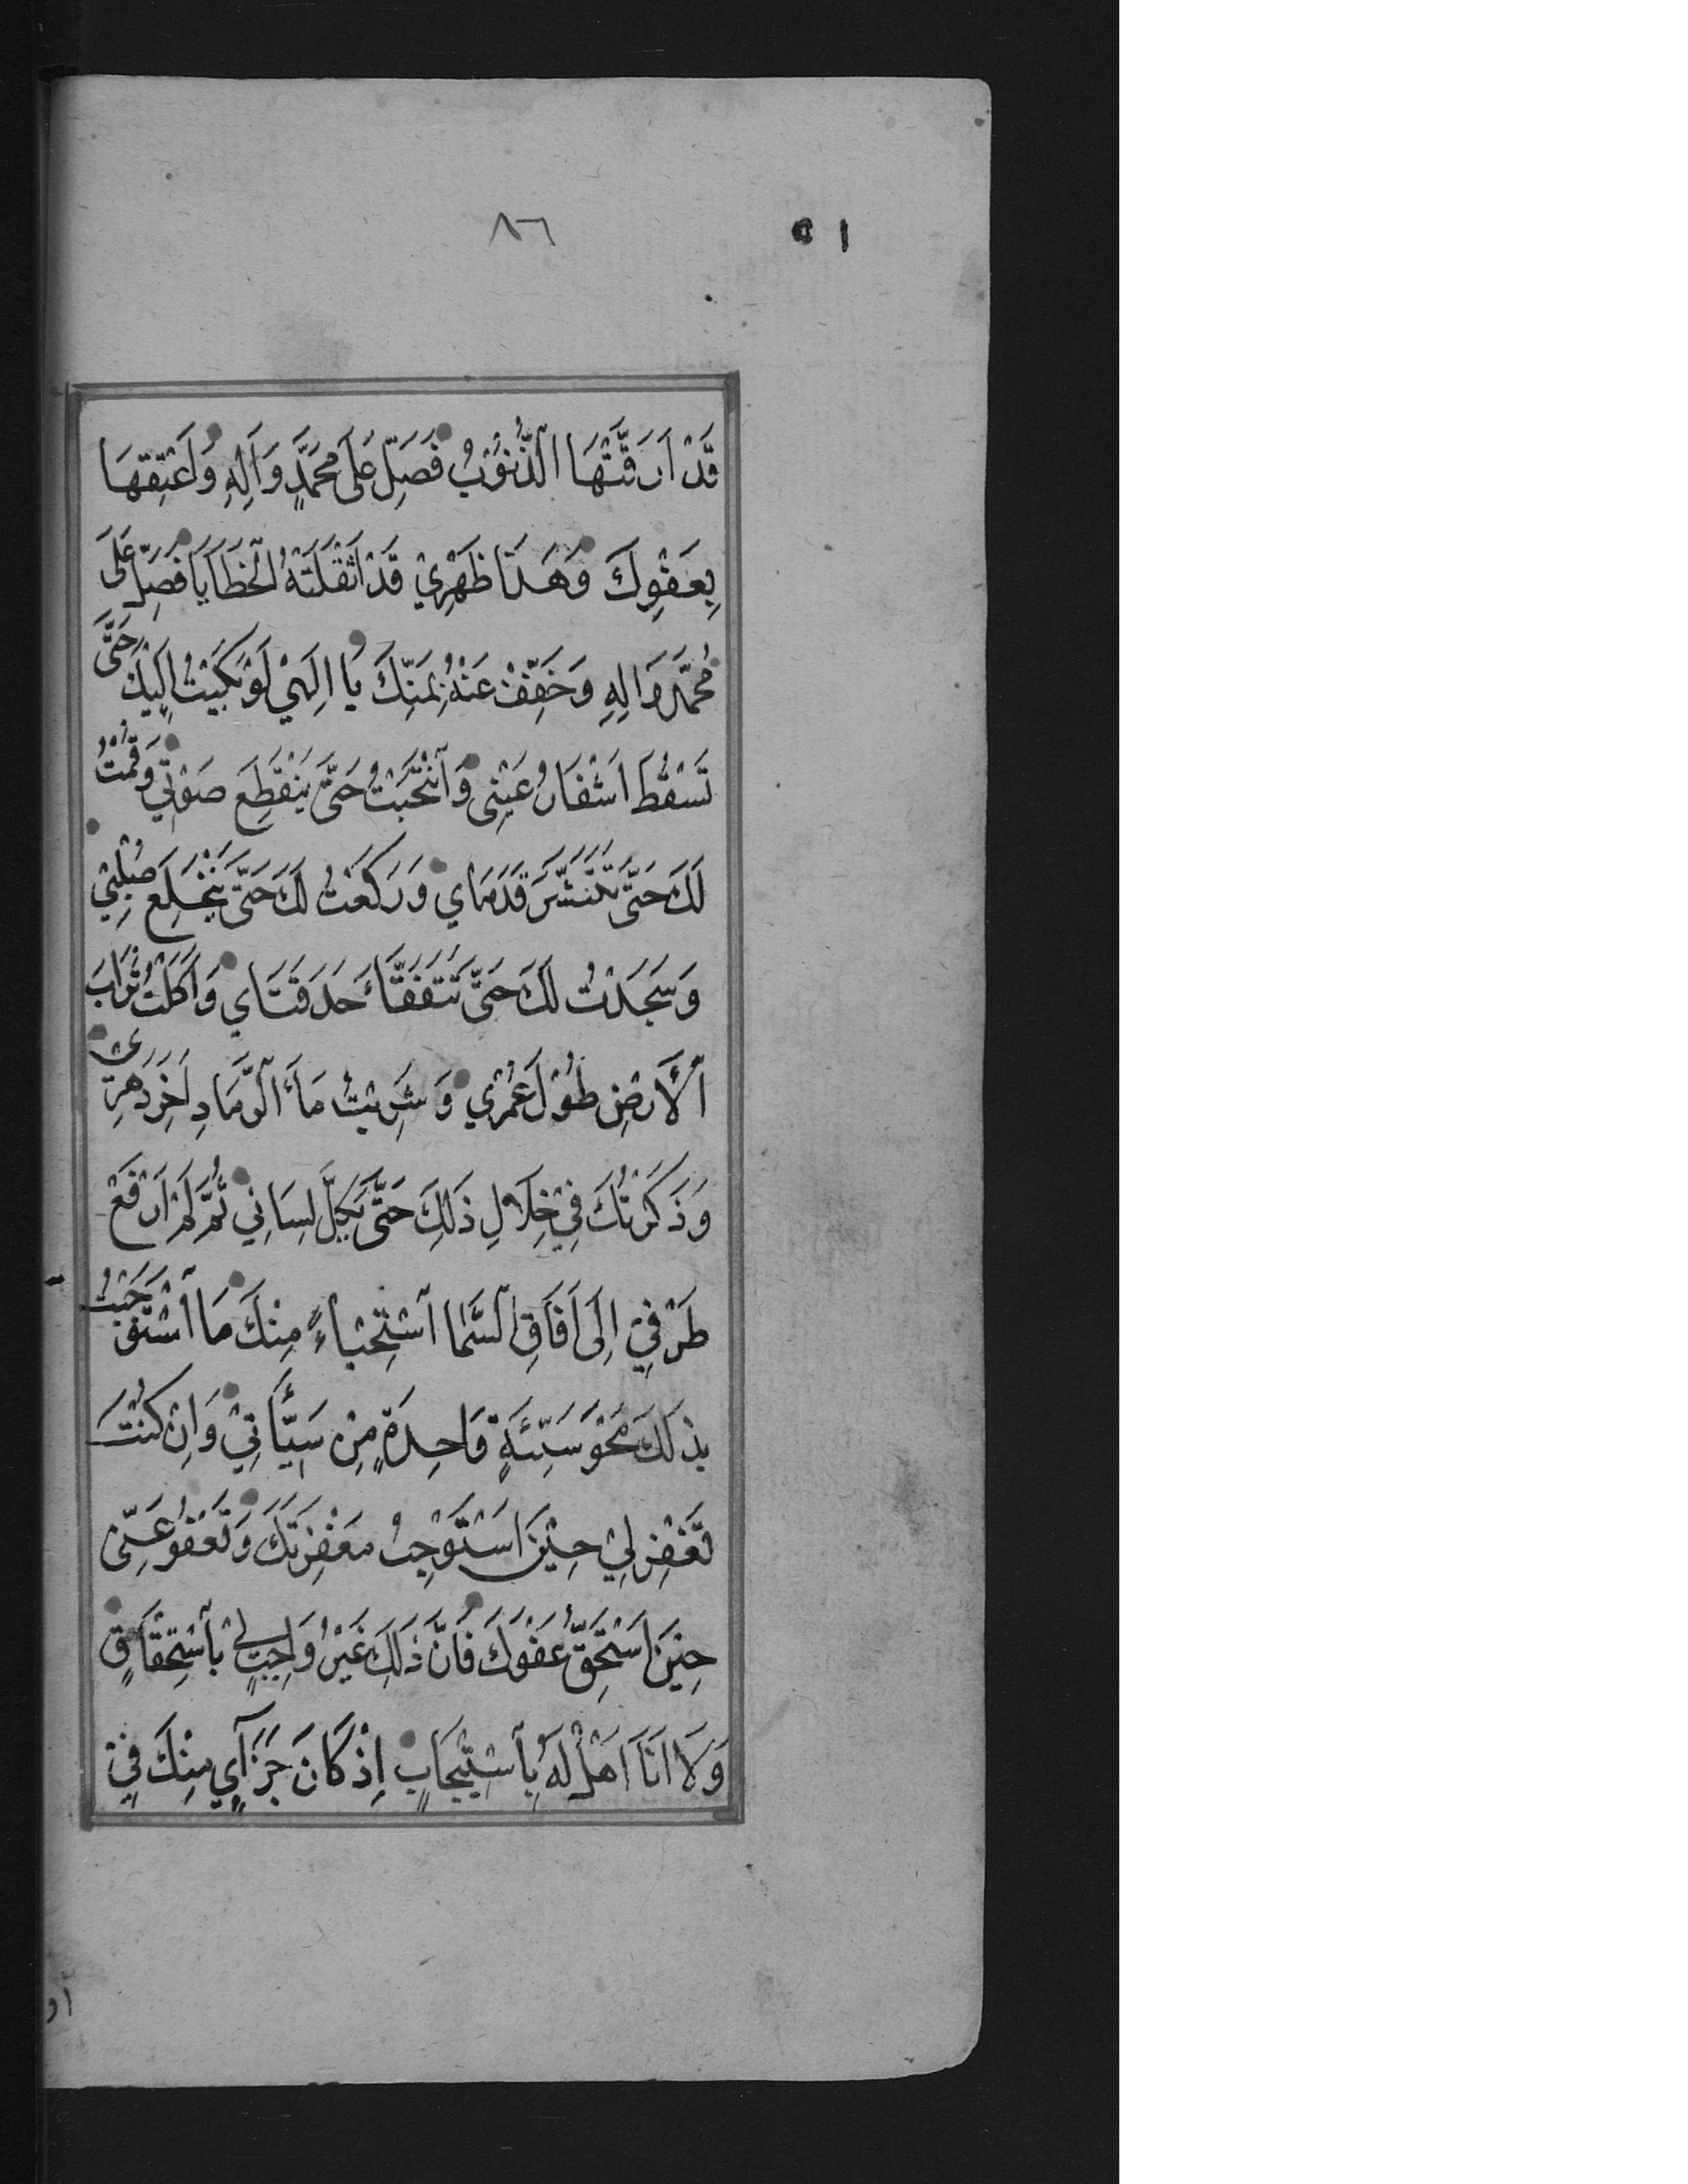 ٨٦
٥١
قَدْ اَرَقَّتْهَا الذُّنُوْبُ فَصَلِّ عَلٰى مُحَمَّدٍ وَاٰلِهِ وَاَعْتِقْهَا
بِعَفْوِكَ وَهَذَا ظَهْرِيْ قَدْ اَثْقَلَتْهُ الْخَطَايَا فَصَلِّ عَلَى
مُحَمَّدٍ وَاٰلِهِ وَخَفِّفْ عَنْهُ بِمَنِّكَ يَا اِلَهِيْ لَوْ بَكَيْتُ اِلَيْكَ حَتَّى
تَسْقُطَ اَشْفَارُ عَيْنِى وَانْتَحَبْتُ حَتَّى يَنْقَطِعَ صَوْتِيْ وَقُمْتُ
لَكَ حَتَّى تَتَنَشَّرَ قَدَمَايَ وَرَكَعْتُ لَكَ حَتَّى يَنْخَلِعَ صُلْبِيْ
وَسَجَدْتُ لَكَ حَتَّى تَتَفَقَّأَ حَدَقَتَايَ وَاَكَلْتُ تُرَابَ
الْاَرْضِ طُوْلَ عُمْرِيْ وَشَرِبْتُ مَاءَ الرَّمَادِ اٰخِرَ دَهْرِىْ
وَذَكَرْتُكَ فِيْ خِلَالِ ذَلِكَ حَتَّى يَكِلَّ لِسَانِيْ ثُمَّ لَمْ اَرْفَعْ
طَرْفِيْ اِلَى اٰفَاقِ السَّمَا اسْتِحْيَاءً مِنْكَ مَا اسْتَوْجَبْتُ
بِذٰلِكَ مَحْوَ سَيِّئَةٍ وَاحِدَةٍ مِنْ سَيِّأَتِيْ وَاِنْ كُنْتَ
تَغْفِرُ لِيْ حِيْنَ اَسْتَوْجِبُ مَغْفِرَتَكَ وَتَعْفُوْ عَنِّى
حِيْنَ اَسْتَحِقُّ عَفْوَكَ فَاِنَّ ذَلِكَ غَيْرُ وَاجِبٍ لِيْ بِاسْتِحْقَاقٍ
وَلَا اَنَا اَهْلٌ لَهُ بِاسْتِيْجَابٍ اِذْ كَانَ جَزَآئِيْ مِنْكَ فِيْ